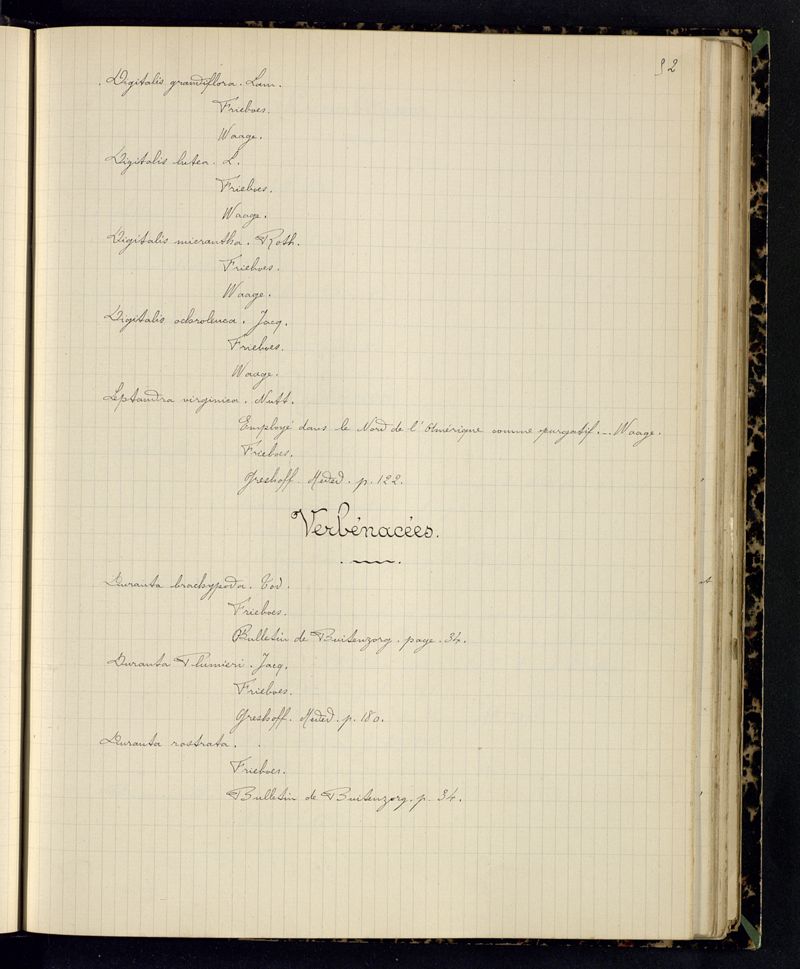 92
Digitalis grandiflora. Lam.
Frieboes.
Waage.
Digitalis lutea. L.
Frieboes.
Waage.
Digitalis micrantha. Roth.
Frieboes.
Waage.
Digitalis ochroleuca. Jacq.
Frieboes.
Waage.
Leptandra virginica. Nutt.
Employé dans le Nord de l'Amérique comme purgatif. — Waage.
Frieboes.
Greshoff. Meded. p. 122.
Verbénacées.
Duranta brachypoda. Tod.
Frieboes.
Bulletin de Buitenzorg. page. 34.
Duranta Plumieri. Jacq.
Frieboes.
Greshoff. Meded. p. 180.
Duranta rostrata.
Frieboes.
Bulletin de Buitenzorg. p. 34.